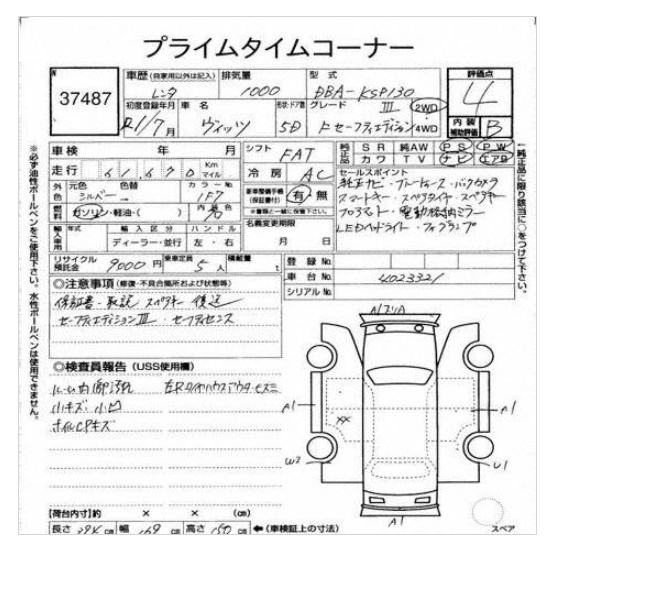 プライムタイムコーナー
№ 37487
車歴(自家用以外は記入) 排気量 型式 評価点
レンタ 1000 DBA-KSP130 4
初度登録年月 車名 形状・ドア数 グレード III 2WD
R1/7月 ヴィッツ 5D F セーフティエディション 4WD
内装補助評価 B
車検 年 月 シフト FAT
純正品 SR 純AW PS PW
カワ TV ナビ エアB
走行 61,670 Km マイル 冷房 AC
セールスポイント
外色 元色 色替 カラーNo.
シルバー 1F7
新車整備手帳(保証書付) 有・無
※書類と一緒に保管下さい。
純正ナビ・ブルートゥース・バックカメラ
スマートキー・スペアタイヤ・スペアキー
電動格納ミラー
LEDヘッドライト・フォグランプ
燃料 ガソリン・軽油・( ) 内装色
名義変更期限
月 日
輸入車用 年式 輸入区分 ハンドル
ディーラー・並行 左・右
リサイクル預託金 9000円 乗車定員 5人 積載量 t
登録No.
車台No. 4023321
シリアルNo.
◎注意事項(修復・不具合箇所および状態等)
保証書・取説 スペアキー 後送
セーフティエディションIII・セーフティセンス
◎検査員報告(USS使用欄)
ルーム内
小キズ 小凹
ホイルCPキズ
A1
A1
A1
XX
W2
U1
A1
【荷台内寸】約 × × (cm)
長さ 394 cm 幅 169 cm 高さ 150 cm ←(車検証上の寸法)
スペア
※必ず油性ボールペンをご使用下さい。水性ボールペンは使用できません。
純正品に限り該当に○をつけて下さい。